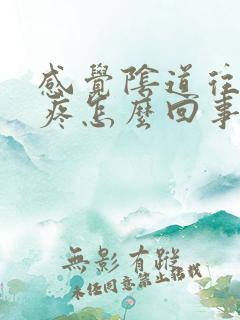 感覺陰道往
疼怎麼回事
無影有蹤
未经同意禁止搭载